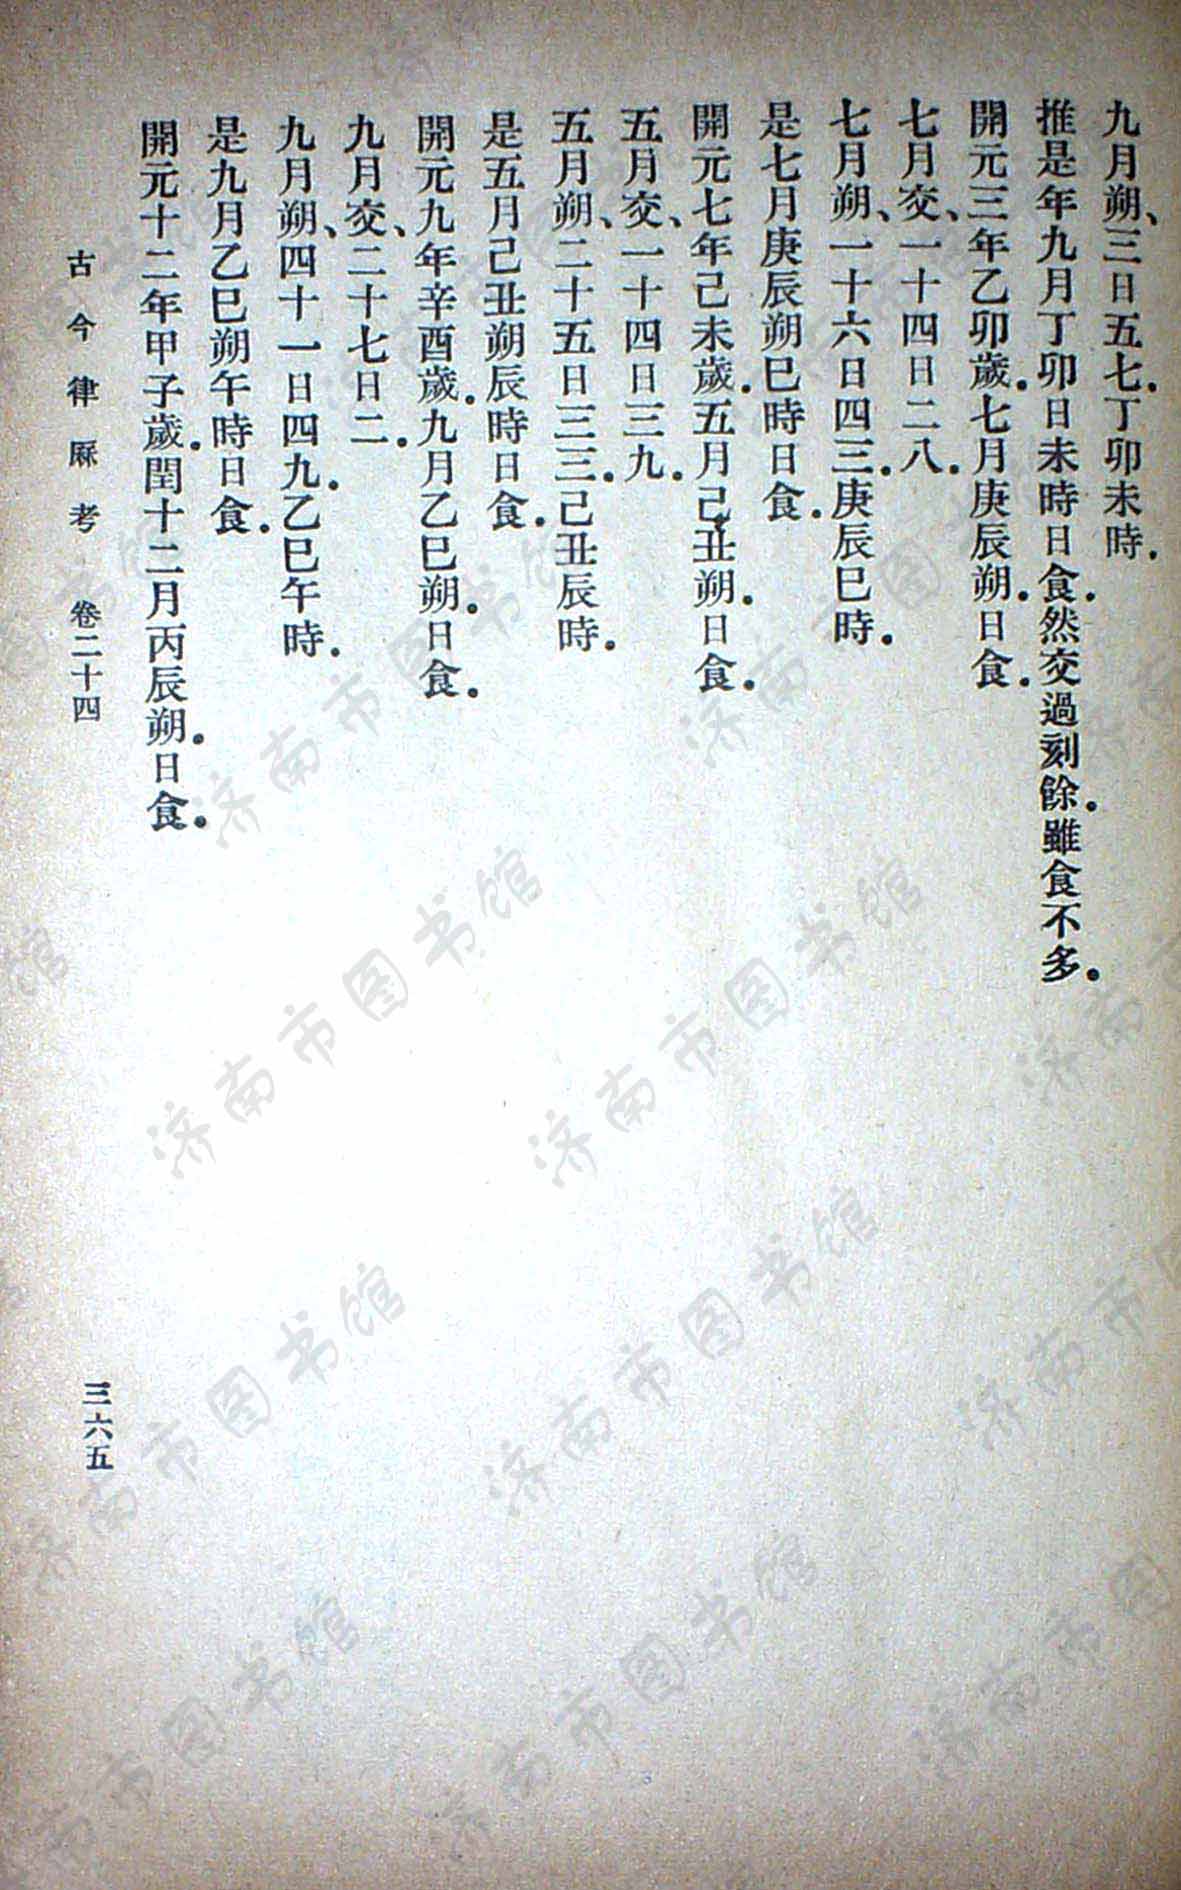 九月朔、三日五七。丁卯未時。
推是年九月丁卯日未時日食。然交過刻餘。雖食不多。
開元三年乙卯歲。七月庚辰朔。日食。
七月交、一十四日二八。
七月朔、一十六日四三。庚辰巳時。
是七月庚辰朔巳時日食。
開元七年己未歲。五月己丑朔。日食。
五月交、一十四日三九。
五月朔、二十五日三三。己丑辰時。
是五月己丑朔辰時日食。
開元九年辛酉歲。九月乙巳朔。日食。
九月交、二十七日二。
九月朔、四十一日四九。乙巳午時。
是九月乙巳朔午時日食。
開元十二年甲子歲。閏十二月丙辰朔。日食。
古今律厤考 卷二十四
三六五
济南市图书馆